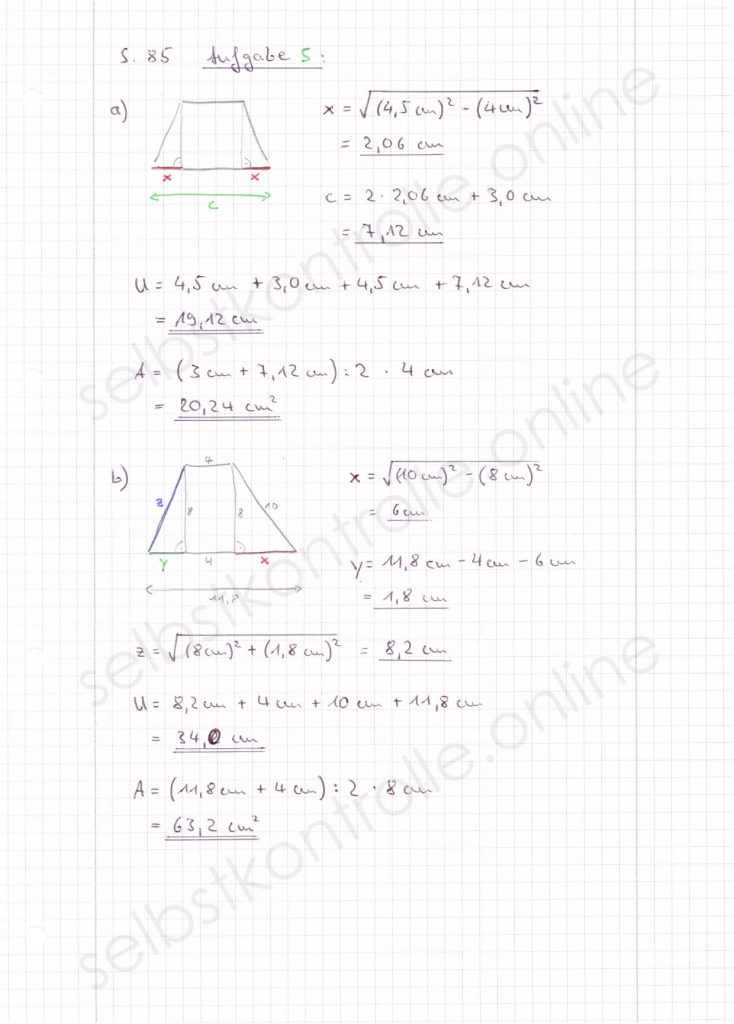 S. 85 Aufgabe 5:
a)
x = √((4,5 cm)² - (4 cm)²)
= 2,06 cm
x x
c
c = 2 · 2,06 cm + 3,0 cm
= 7,12 cm
U = 4,5 cm + 3,0 cm + 4,5 cm + 7,12 cm
= 19,12 cm
A = (3 cm + 7,12 cm) : 2 · 4 cm
= 20,24 cm²
b)
4
z 8 8 10
y 4 x
11,8
x = √((10 cm)² - (8 cm)²)
= 6 cm
y = 11,8 cm - 4 cm - 6 cm
= 1,8 cm
z = √((8 cm)² + (1,8 cm)²) = 8,2 cm
U = 8,2 cm + 4 cm + 10 cm + 11,8 cm
= 34,0 cm
A = (11,8 cm + 4 cm) : 2 · 8 cm
= 63,2 cm²
selbstkontrolle.online
selbstkontrolle.online
selbstkontrolle.online